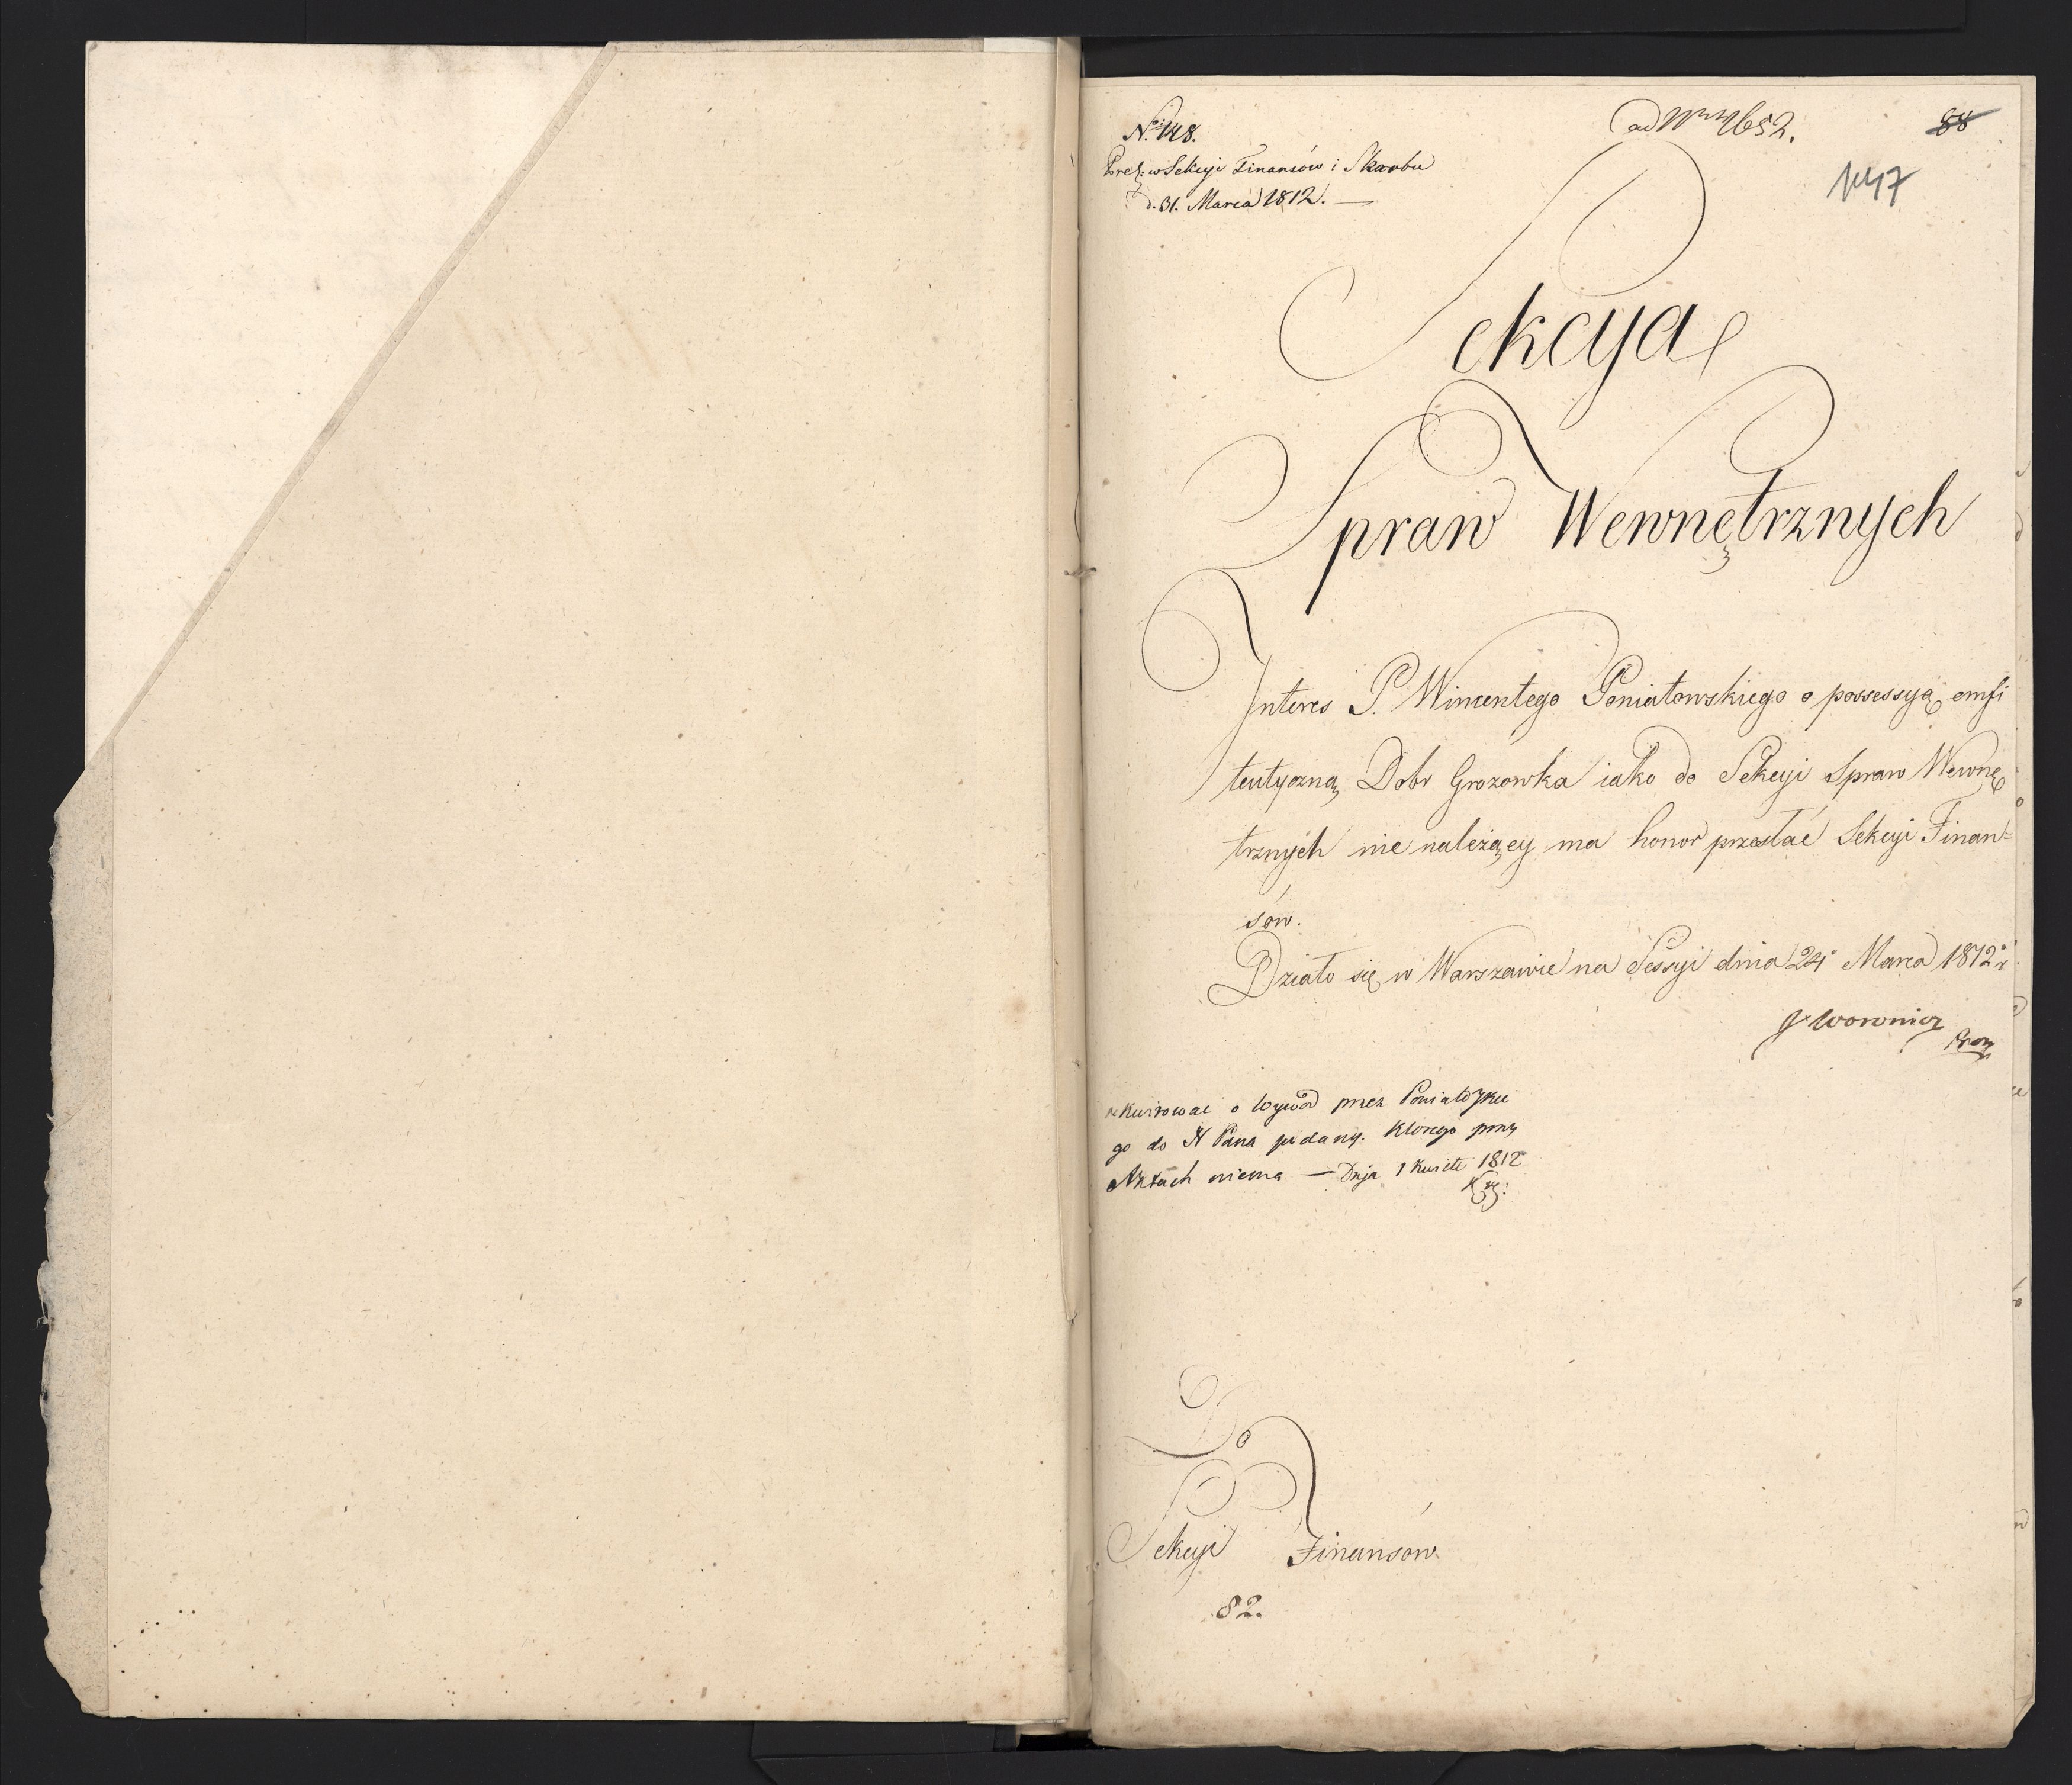 No. 148.
ad Nrm 4652.
88
147
Prez: w Sekcyi Finansów i Skarbu
d. 31. Marca 1812. —
Sekcya
Spraw Wewnętrznych
Interes P. Wincentego Poniatowskiego o possessyą emfi
teutyczną Dobr Grozowka iako do Sekcyi Spraw Wewnę
trznych nie należący ma honor przesłać Sekcyi Finan=
sów.
Działo się w Warszawie na Sessyi dnia 24o Marca 1812o r
J Woronicz
Prezy
rekwirować o wywód przez Poniatowskie
go do N Pana podany. Ktorego przy
Aktach niema — Dnja 1 Kwiet 1812
Do
Sekcyi Finansów
82.